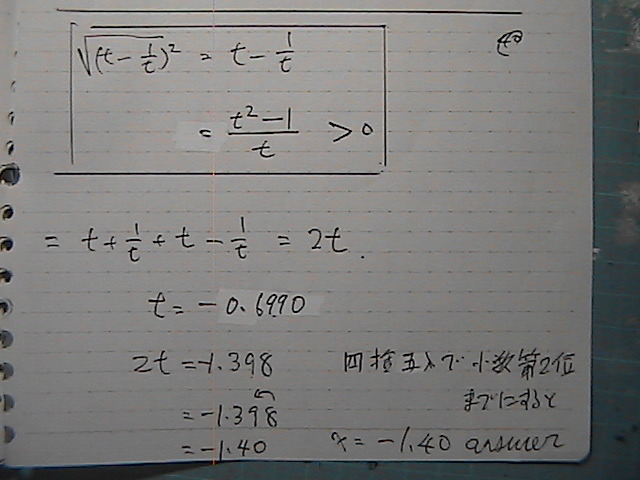 √(t - 1/t)² = t - 1/t
= (t² - 1)/t > 0
= t + 1/t + t - 1/t = 2t.
t = -0.6990
2t = -1.398 四捨五入で小数第2位
= -1.398 までにすると
= -1.40 x = -1.40 answer